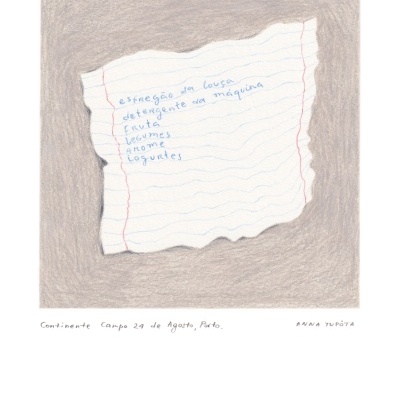 esfregão da louça
detergente da máquina
fruta
legumes
arome
Iogurtes
Continente Campo 24 de Agosto, Porto.
ANNA